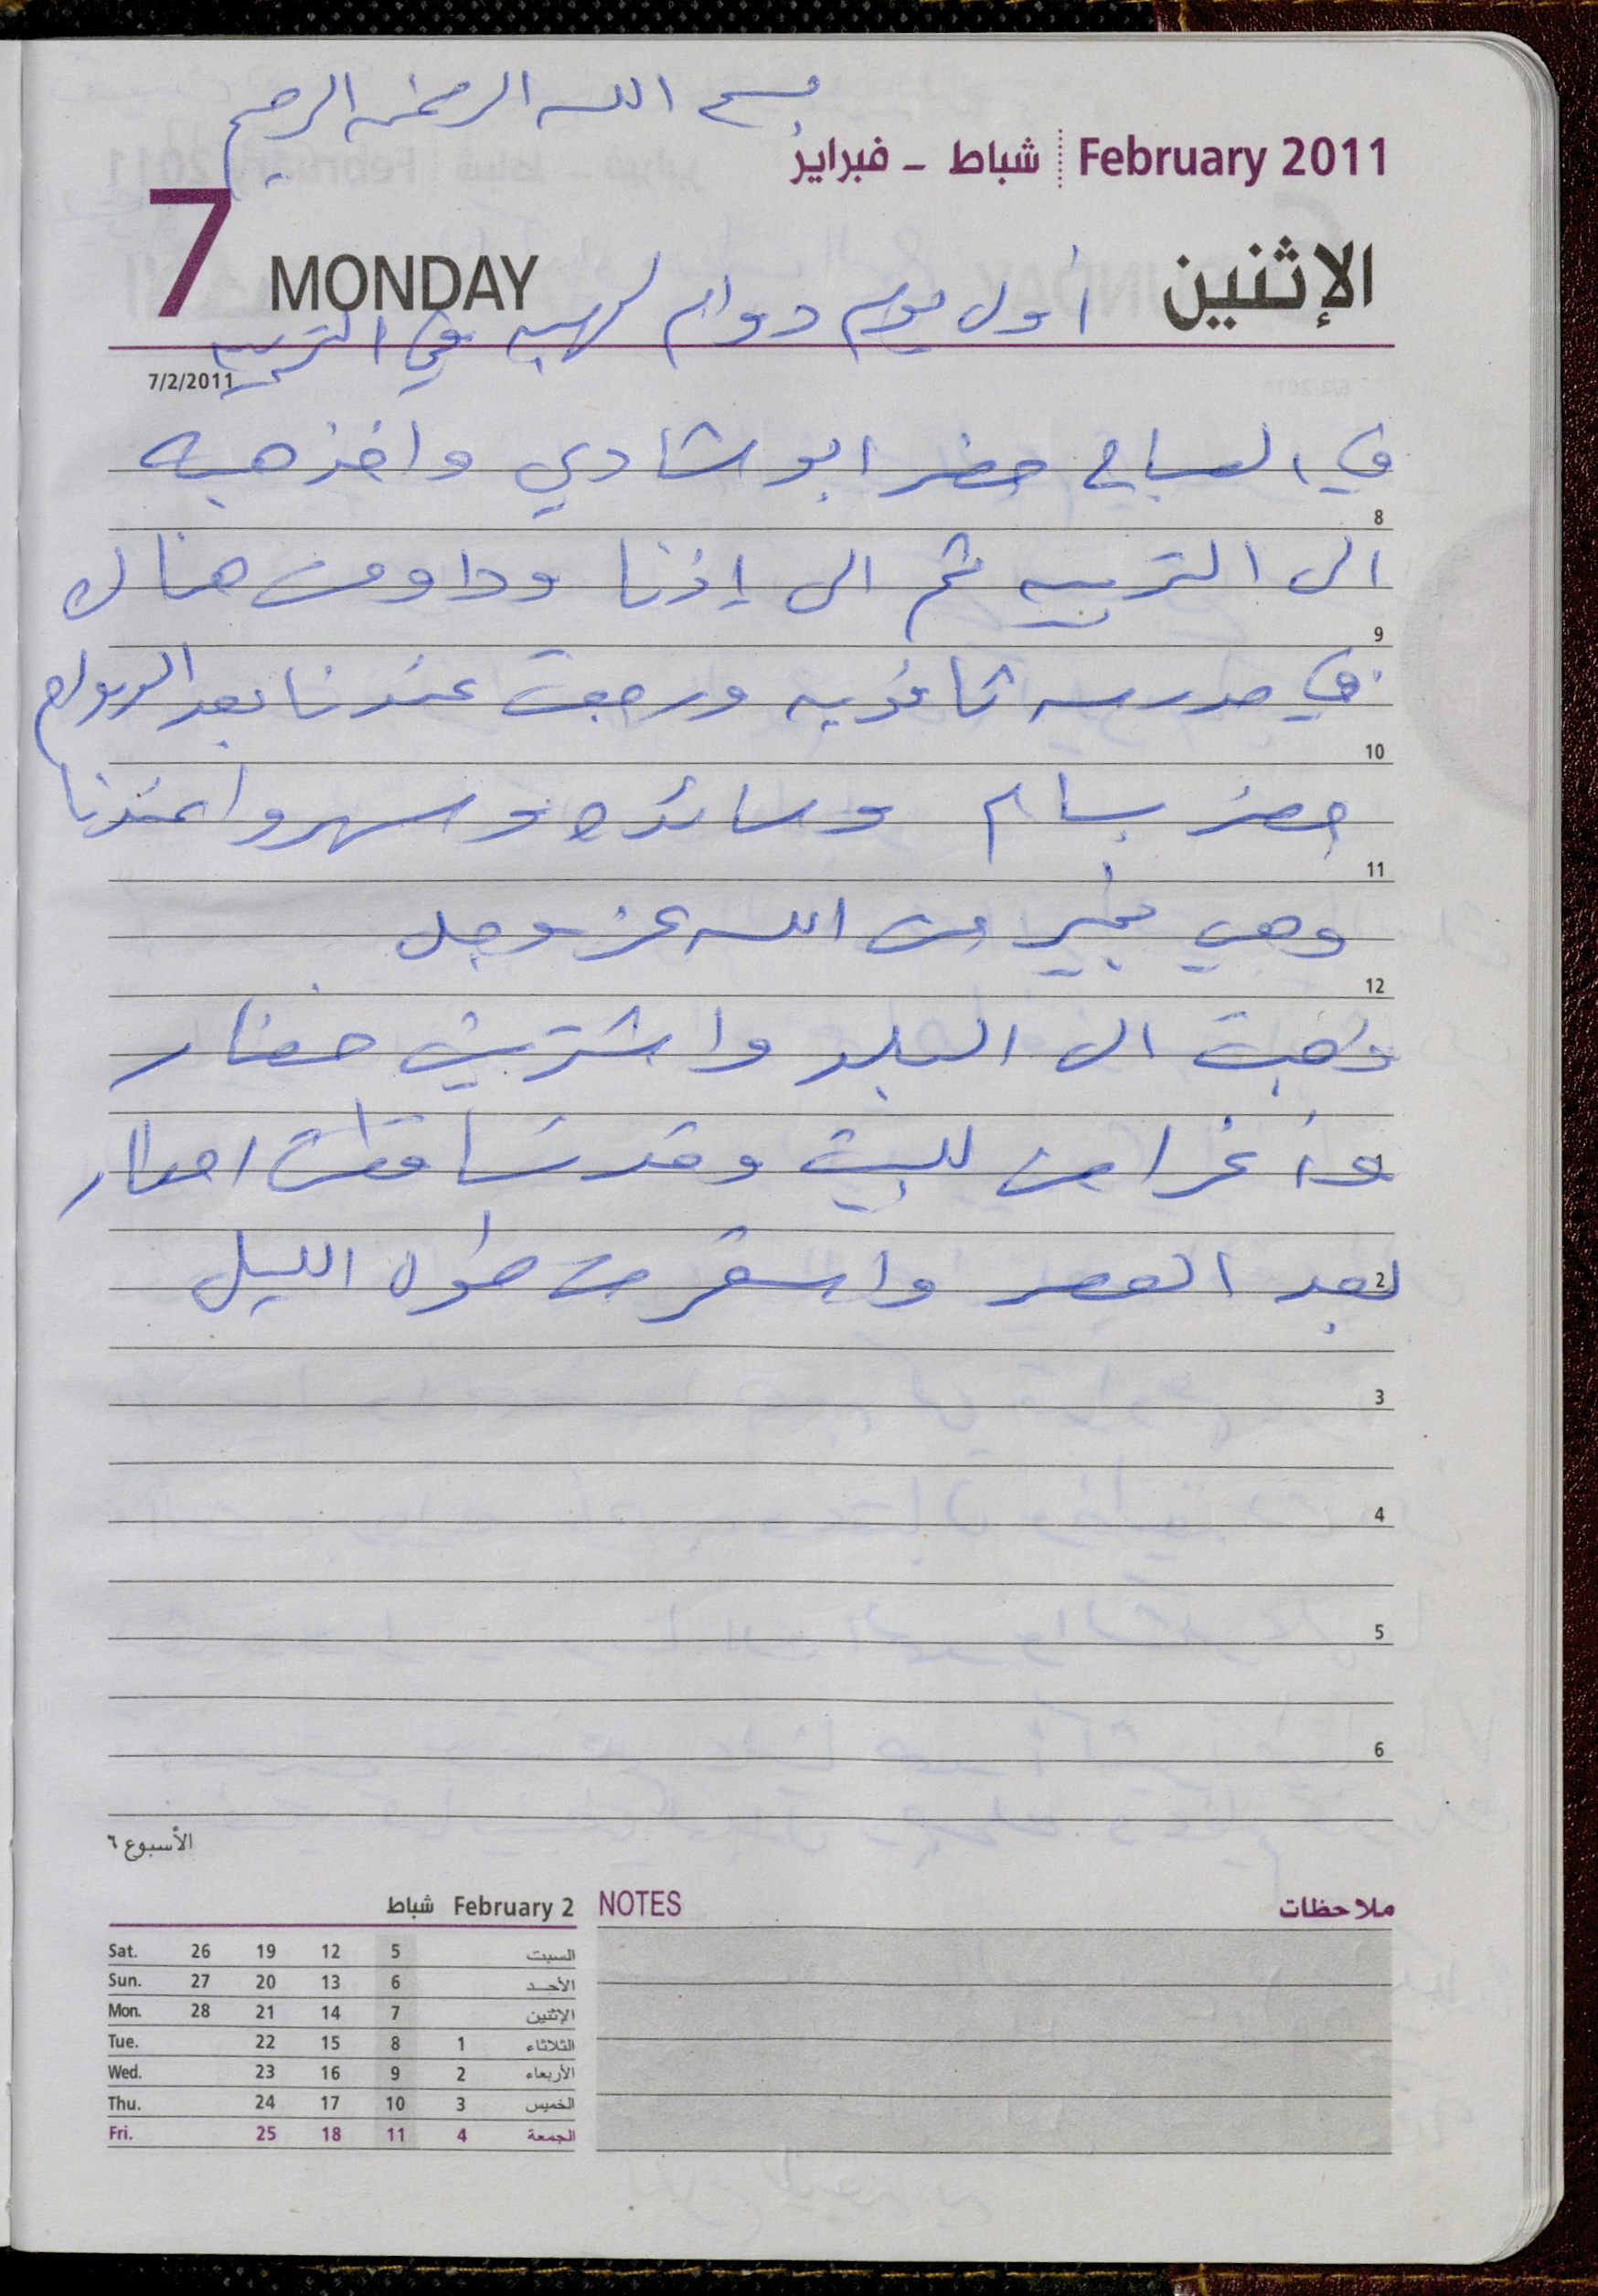 بسم الله الرحمن الرحيم
February 2011 شباط - فبراير
7 MONDAY الإثنين
أول يوم دوام لهبه في التربيه
7/2/2011
في الصباح حضر ابو شادي واخذ هبه
8
الى التربيه ثم الى إذنا وداومت هناك
9
في مدرسه ثانويه ورجعت عندنا بعد الدوام
10
حضر بسام وسائده وسهروا عندنا
11
وهي بخير من الله عز وجل
12
ذهبت الى البلد واشتريت خضار
1
وأغراض للبيت وقد تساقطت امطار
2
بعد العصر واستمرت طول الليل
3
4
5
6
الأسبوع ٦
شباط February 2
Sat. 26 19 12 5 السبت
Sun. 27 20 13 6 الأحد
Mon. 28 21 14 7 الإثنين
Tue. 22 15 8 1 الثلاثاء
Wed. 23 16 9 2 الأربعاء
Thu. 24 17 10 3 الخميس
Fri. 25 18 11 4 الجمعة
NOTES ملاحظات